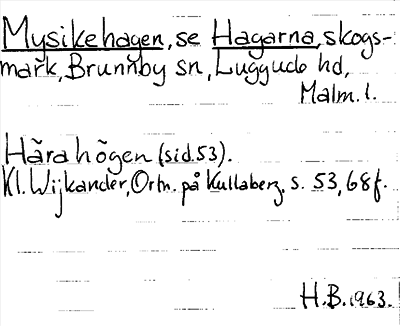 Mysikehagen, se Hagarna, skogs-
mark, Brunnby sn, Luggude hd,
Malm. l.
Håra högen (sid. 53).
Kl. Wijkander, Ortn. på Kullaberg, s. 53, 68f.
H.B. 1963.